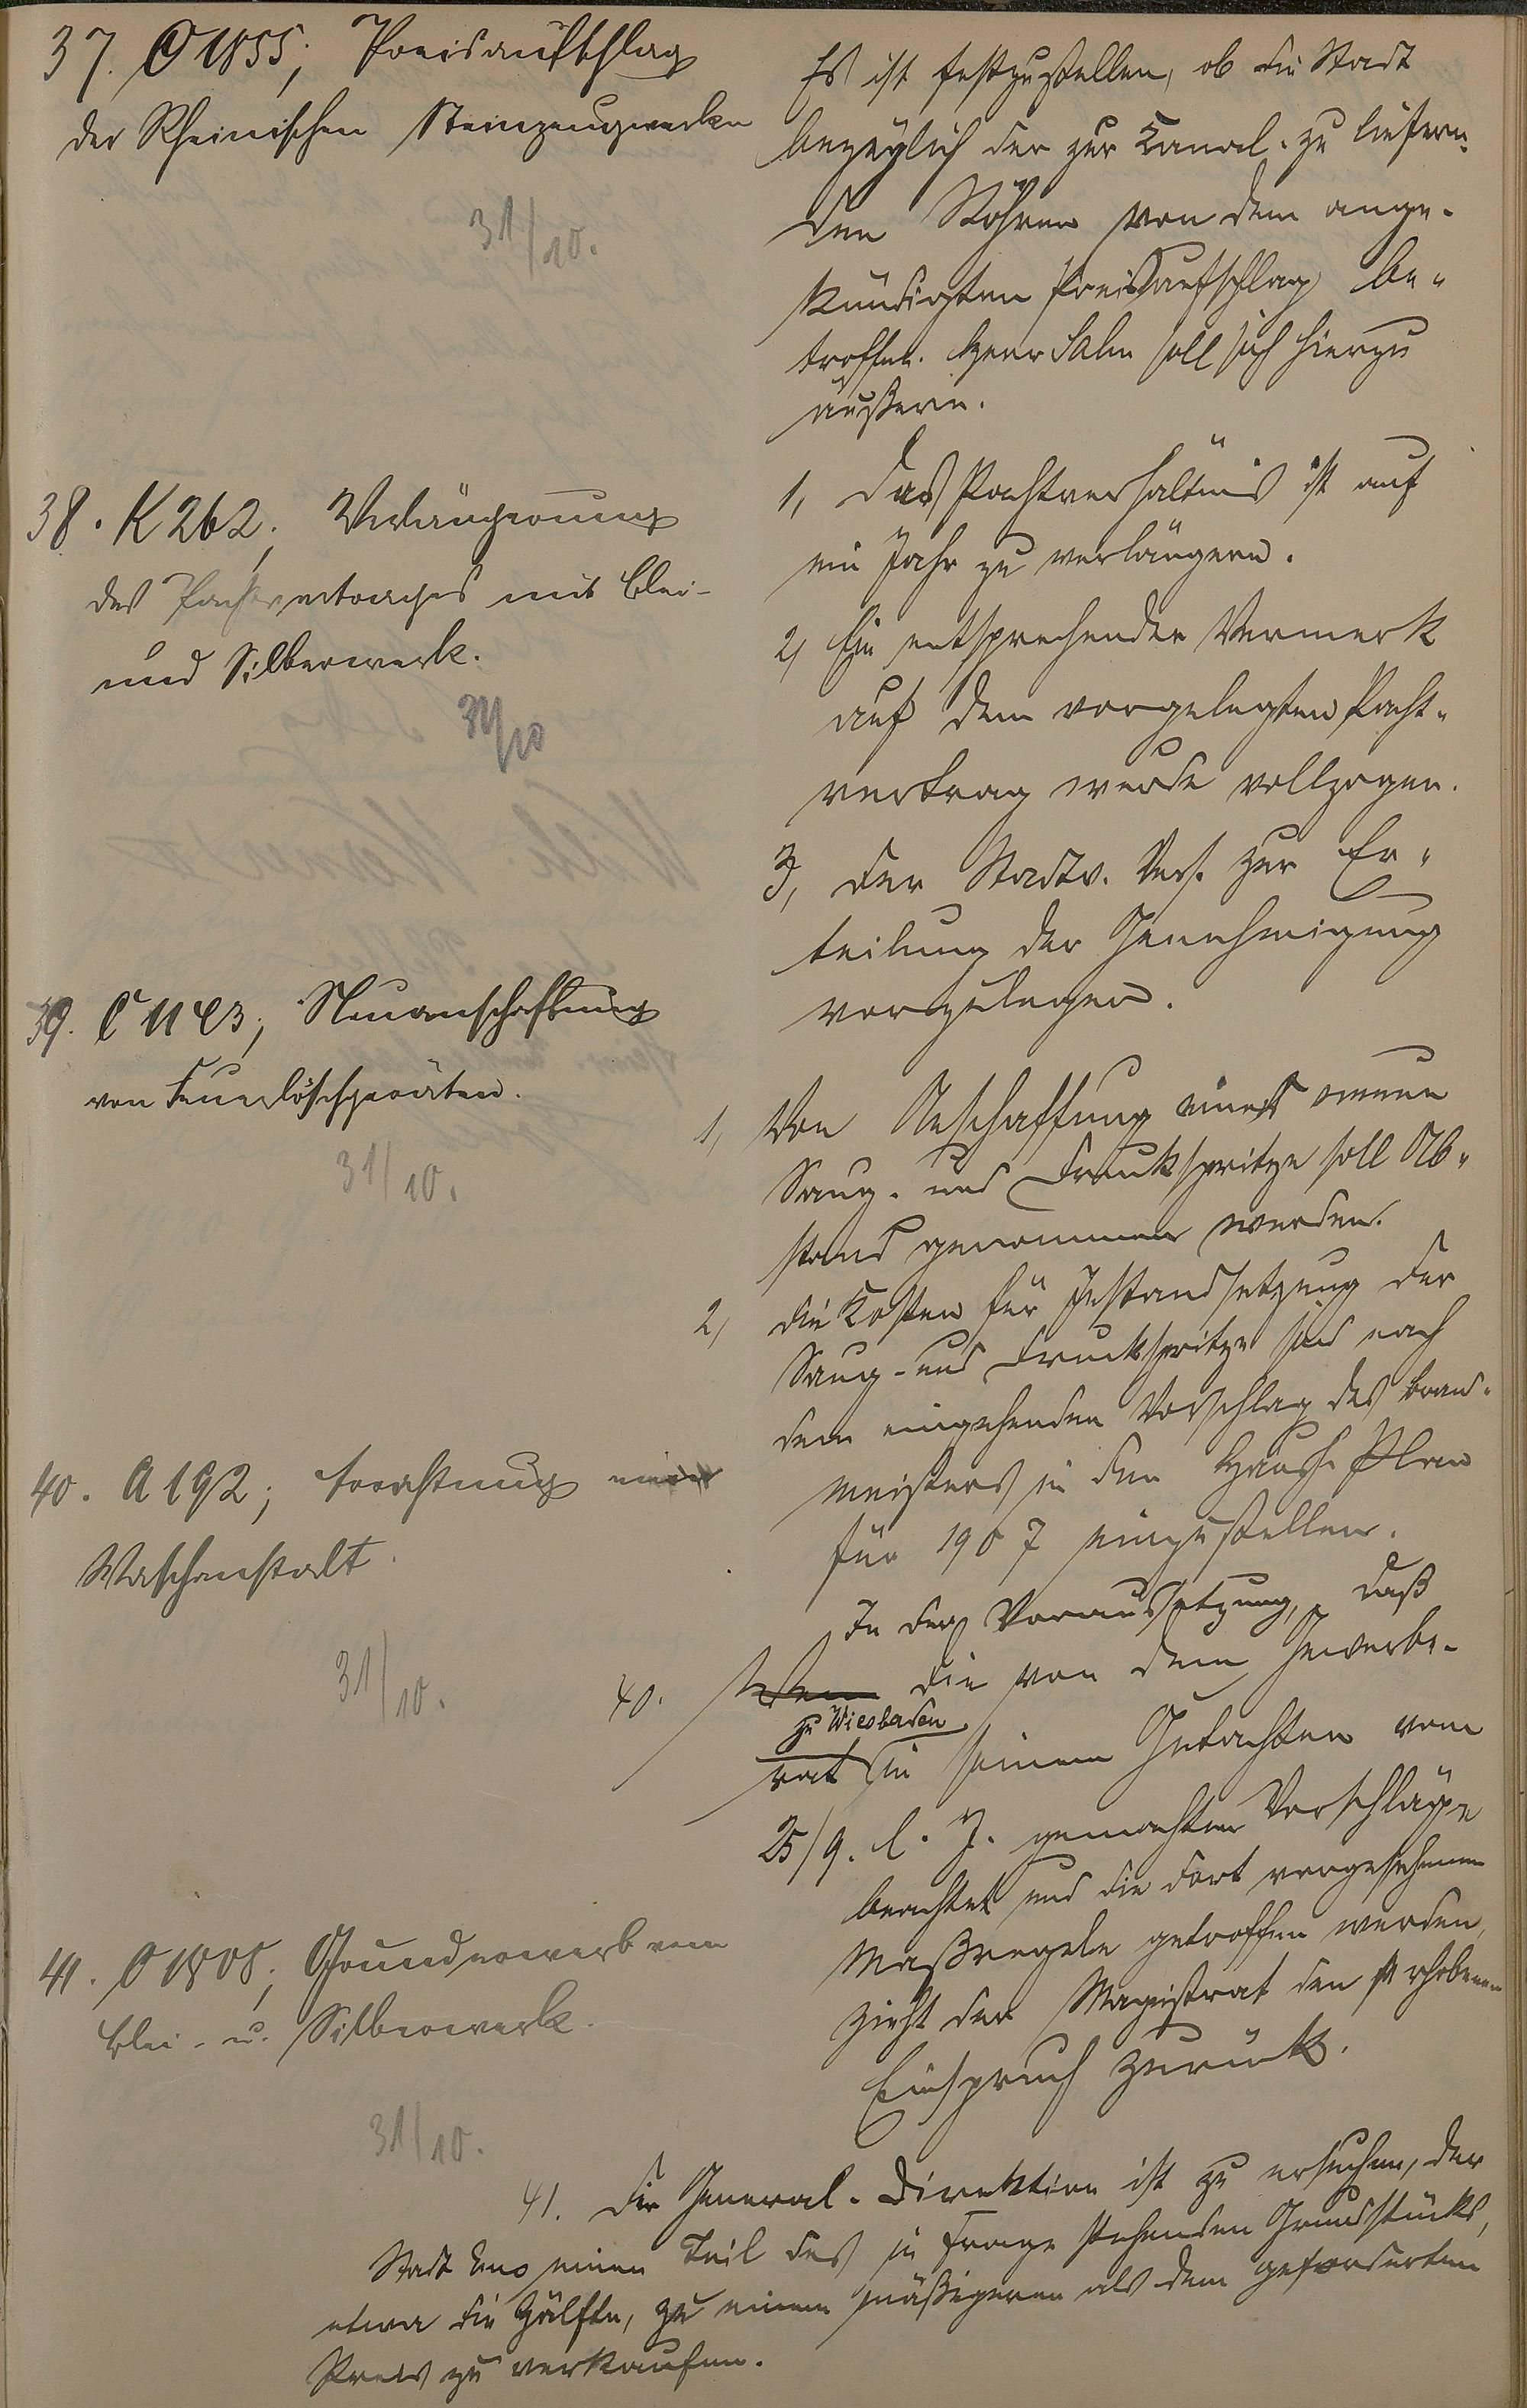 37. C 1855; Preisaufschlag
der Rheinischen Steinzeugwerke
31/10.
Es ist festzustellen, ob die Stadt
bezüglich der zur Kanal. zu liefern-
den Röhren von dem ange-
kündigten Preisaufschlag be-
troffen. Herr Salm soll sich hierzu
äußern.
38. K 262; Verlängerung
des Pachtvertrages mit Blei-
und Silberwerk.
31/10
1, Das Pachtverhältnis ist auf
ein Jahr zu verlängern.
2, Ein entsprechender Vermerk
auf dem vorgelegten Pacht-
vertrag wurde vollzogen.
3, Der Stadtv. Vers. zur Er-
teilung der Genehmigung
vorzulegen.
39. C 1143; Neuanschaffung
von Feuerlöschgeräten.
31/10.
1, Von Beschaffung einer neuen
Saug- und Druckspritze soll Ab-
stand genommen werden.
2, die Kosten für Instandsetzung der
Saug- und Druckspritze sind nach
dem eingehenden Vorschlag des Brand-
meisters in den Haush. Plan
für 1907 einzustellen.
40. A 192; Errichtung einer
Waschanstalt.
31/10.
In der Voraussetzung, daß
40. die von dem Gewerbe-
zu Wiesbaden
rat in seinem Gutachten vom
25/9. l. J. gemachten Vorschläge
beachtet und die dort vorgesehenen
Maßregeln getroffen werden,
zieht der Magistrat den erhobenen
Einspruch zurück.
41. C 1808; Grunderwerb vom
Blei- u. Silberwerk.
31/10.
41. Die General-Direktion ist zu ersuchen, der
Stadt Ems einen Teil des in Frage stehenden Grundstücks,
etwa die Hälfte, zu einem mäßigeren als dem geforderten
Preis zu verkaufen.